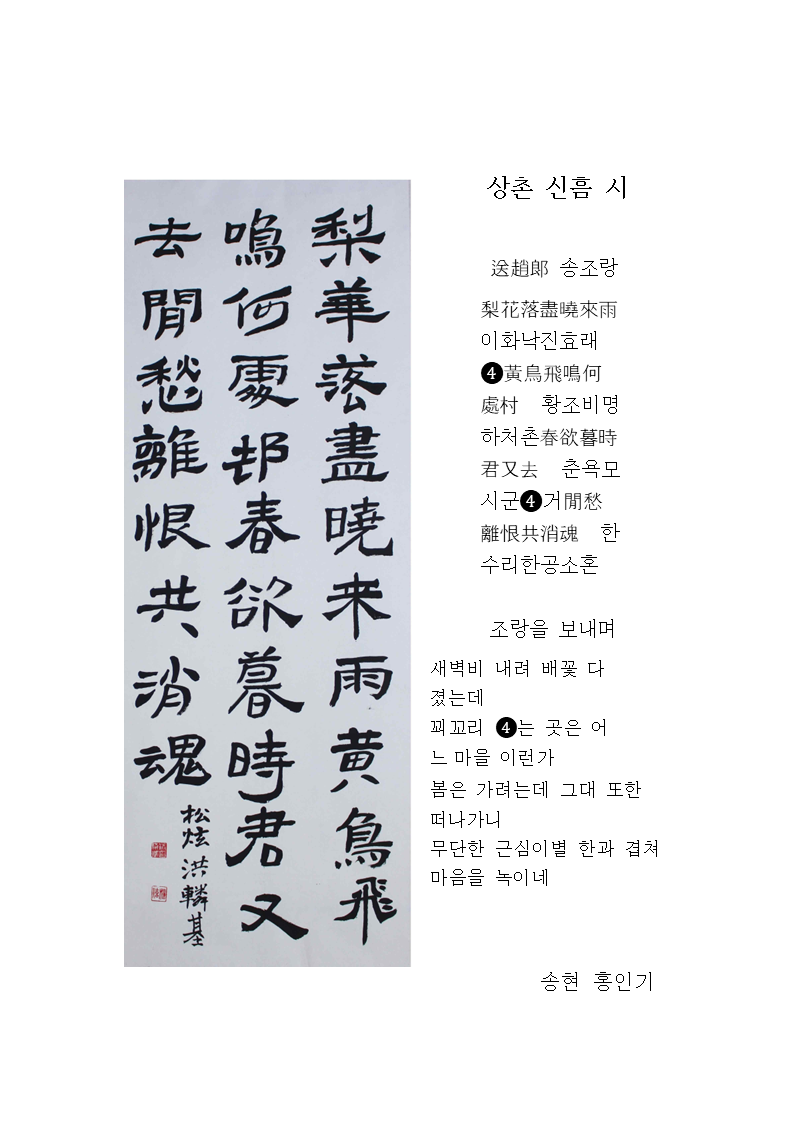 梨華落盡曉来雨黄鳥飛
鳴何處邨春欲暮時君又
去閒愁離恨共消魂
松炫洪轔基
상촌 신흠 시
送趙郞 송조랑
梨花落盡曉來雨
이화낙진효래
❹黃鳥飛鳴何
處村 황조비명
하처촌春欲暮時
君又去 춘욕모
시군❹거閒愁
離恨共消魂 한
수리한공소혼
조랑을 보내며
새벽비 내려 배꽃 다
졌는데
꾀꼬리 ❹는 곳은 어
느 마을 이런가
봄은 가려는데 그대 또한
떠나가니
무단한 근심이별 한과 겹쳐
마음을 녹이네
송현 홍인기